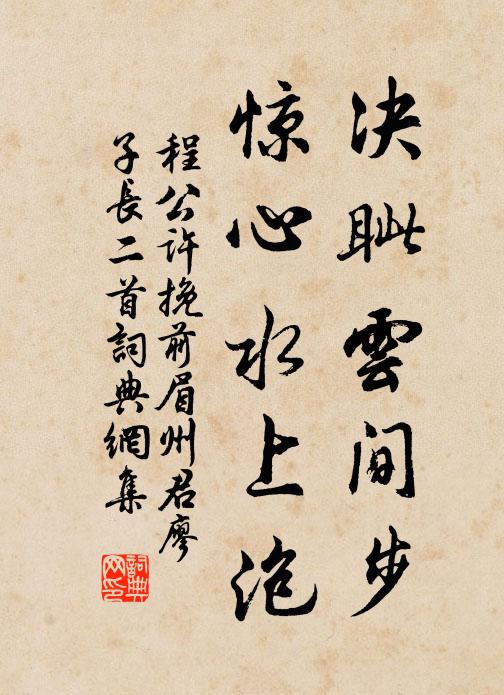 决眦雲間步
惊心水上泡
程公许挽前眉州君廖
子長二首詞典網集
詞典
网印